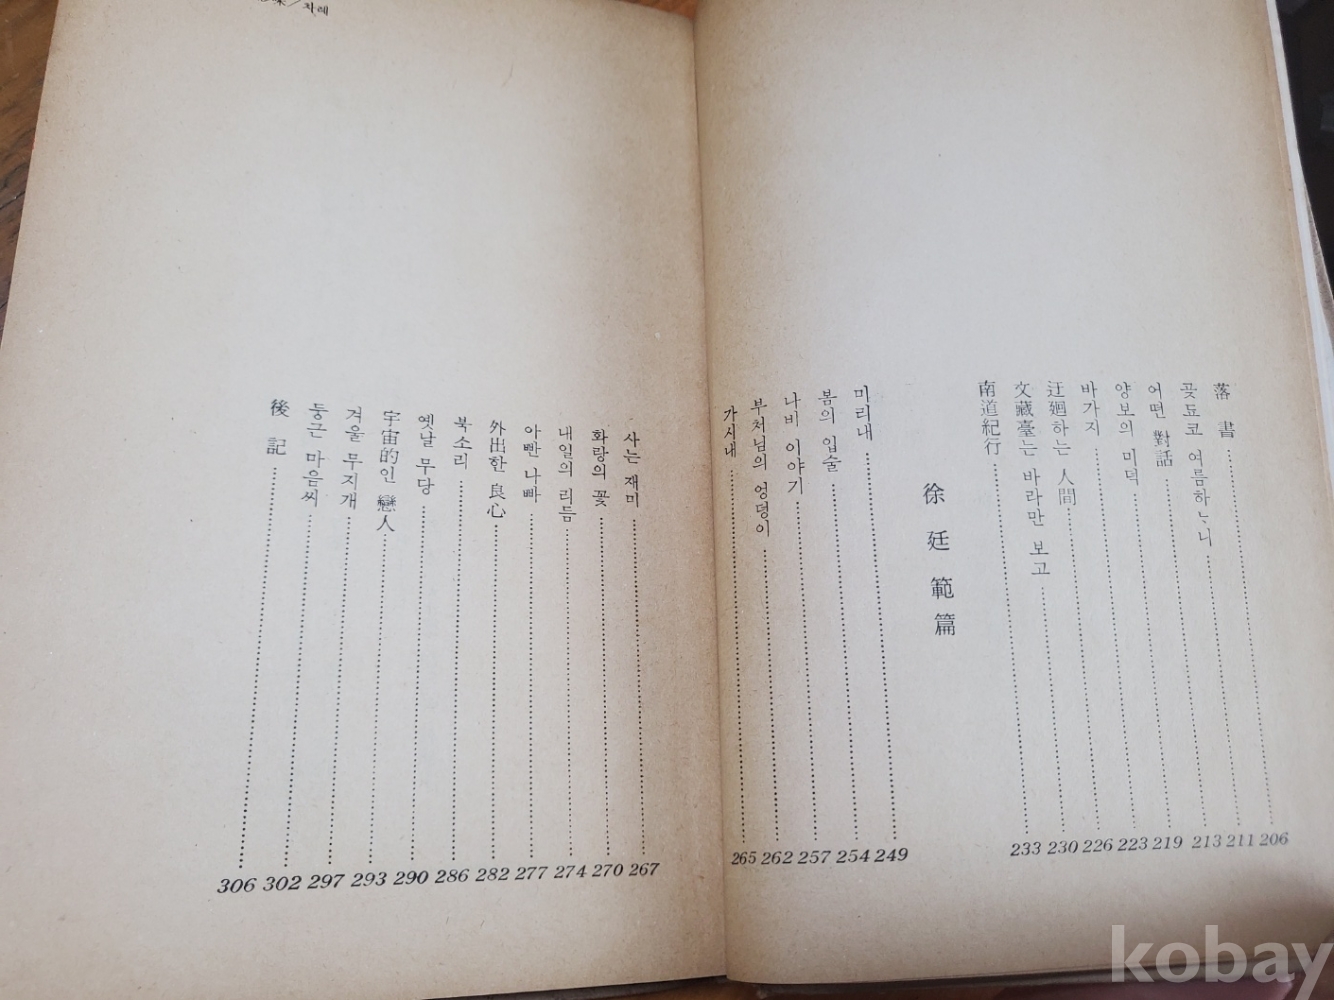 落書 206
곶됴코 여름하ᄂ니 211
어떤 對話 213
양보의 미덕 219
바가지 223
迂廻하는 人間 226
文藏臺는 바라만 보고 230
南道紀行 233
徐廷範篇
미리내 249
봄의 입술 254
나비 이야기 257
부처님의 엉덩이 262
가시내 265
／차례
사는 재미 267
화랑의 꽃 270
내일의 리듬 274
아빤 나빠 277
外出한 良心 282
북소리 286
옛날 무당 290
宇宙的인 戀人 293
겨울 무지개 297
둥근 마음씨 302
後記 306
kobay